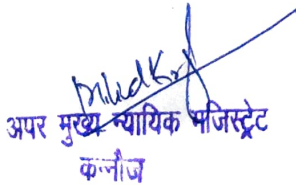 अपर मुख्य न्यायिक मजिस्ट्रेट
कन्नौज